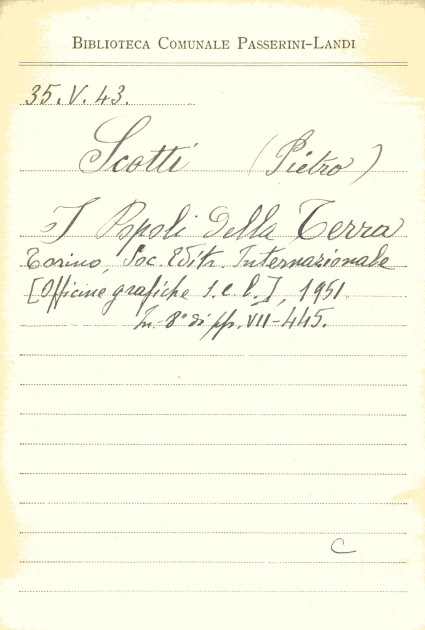 BIBLIOTECA COMUNALE PASSERINI-LANDI
35.V.43.
Scotti (Pietro)
I Popoli della Terra
Torino, Soc. Editr. Internazionale
[Officine grafiche s.e.l.], 1951.
In-8° di pp. VII-445.
C